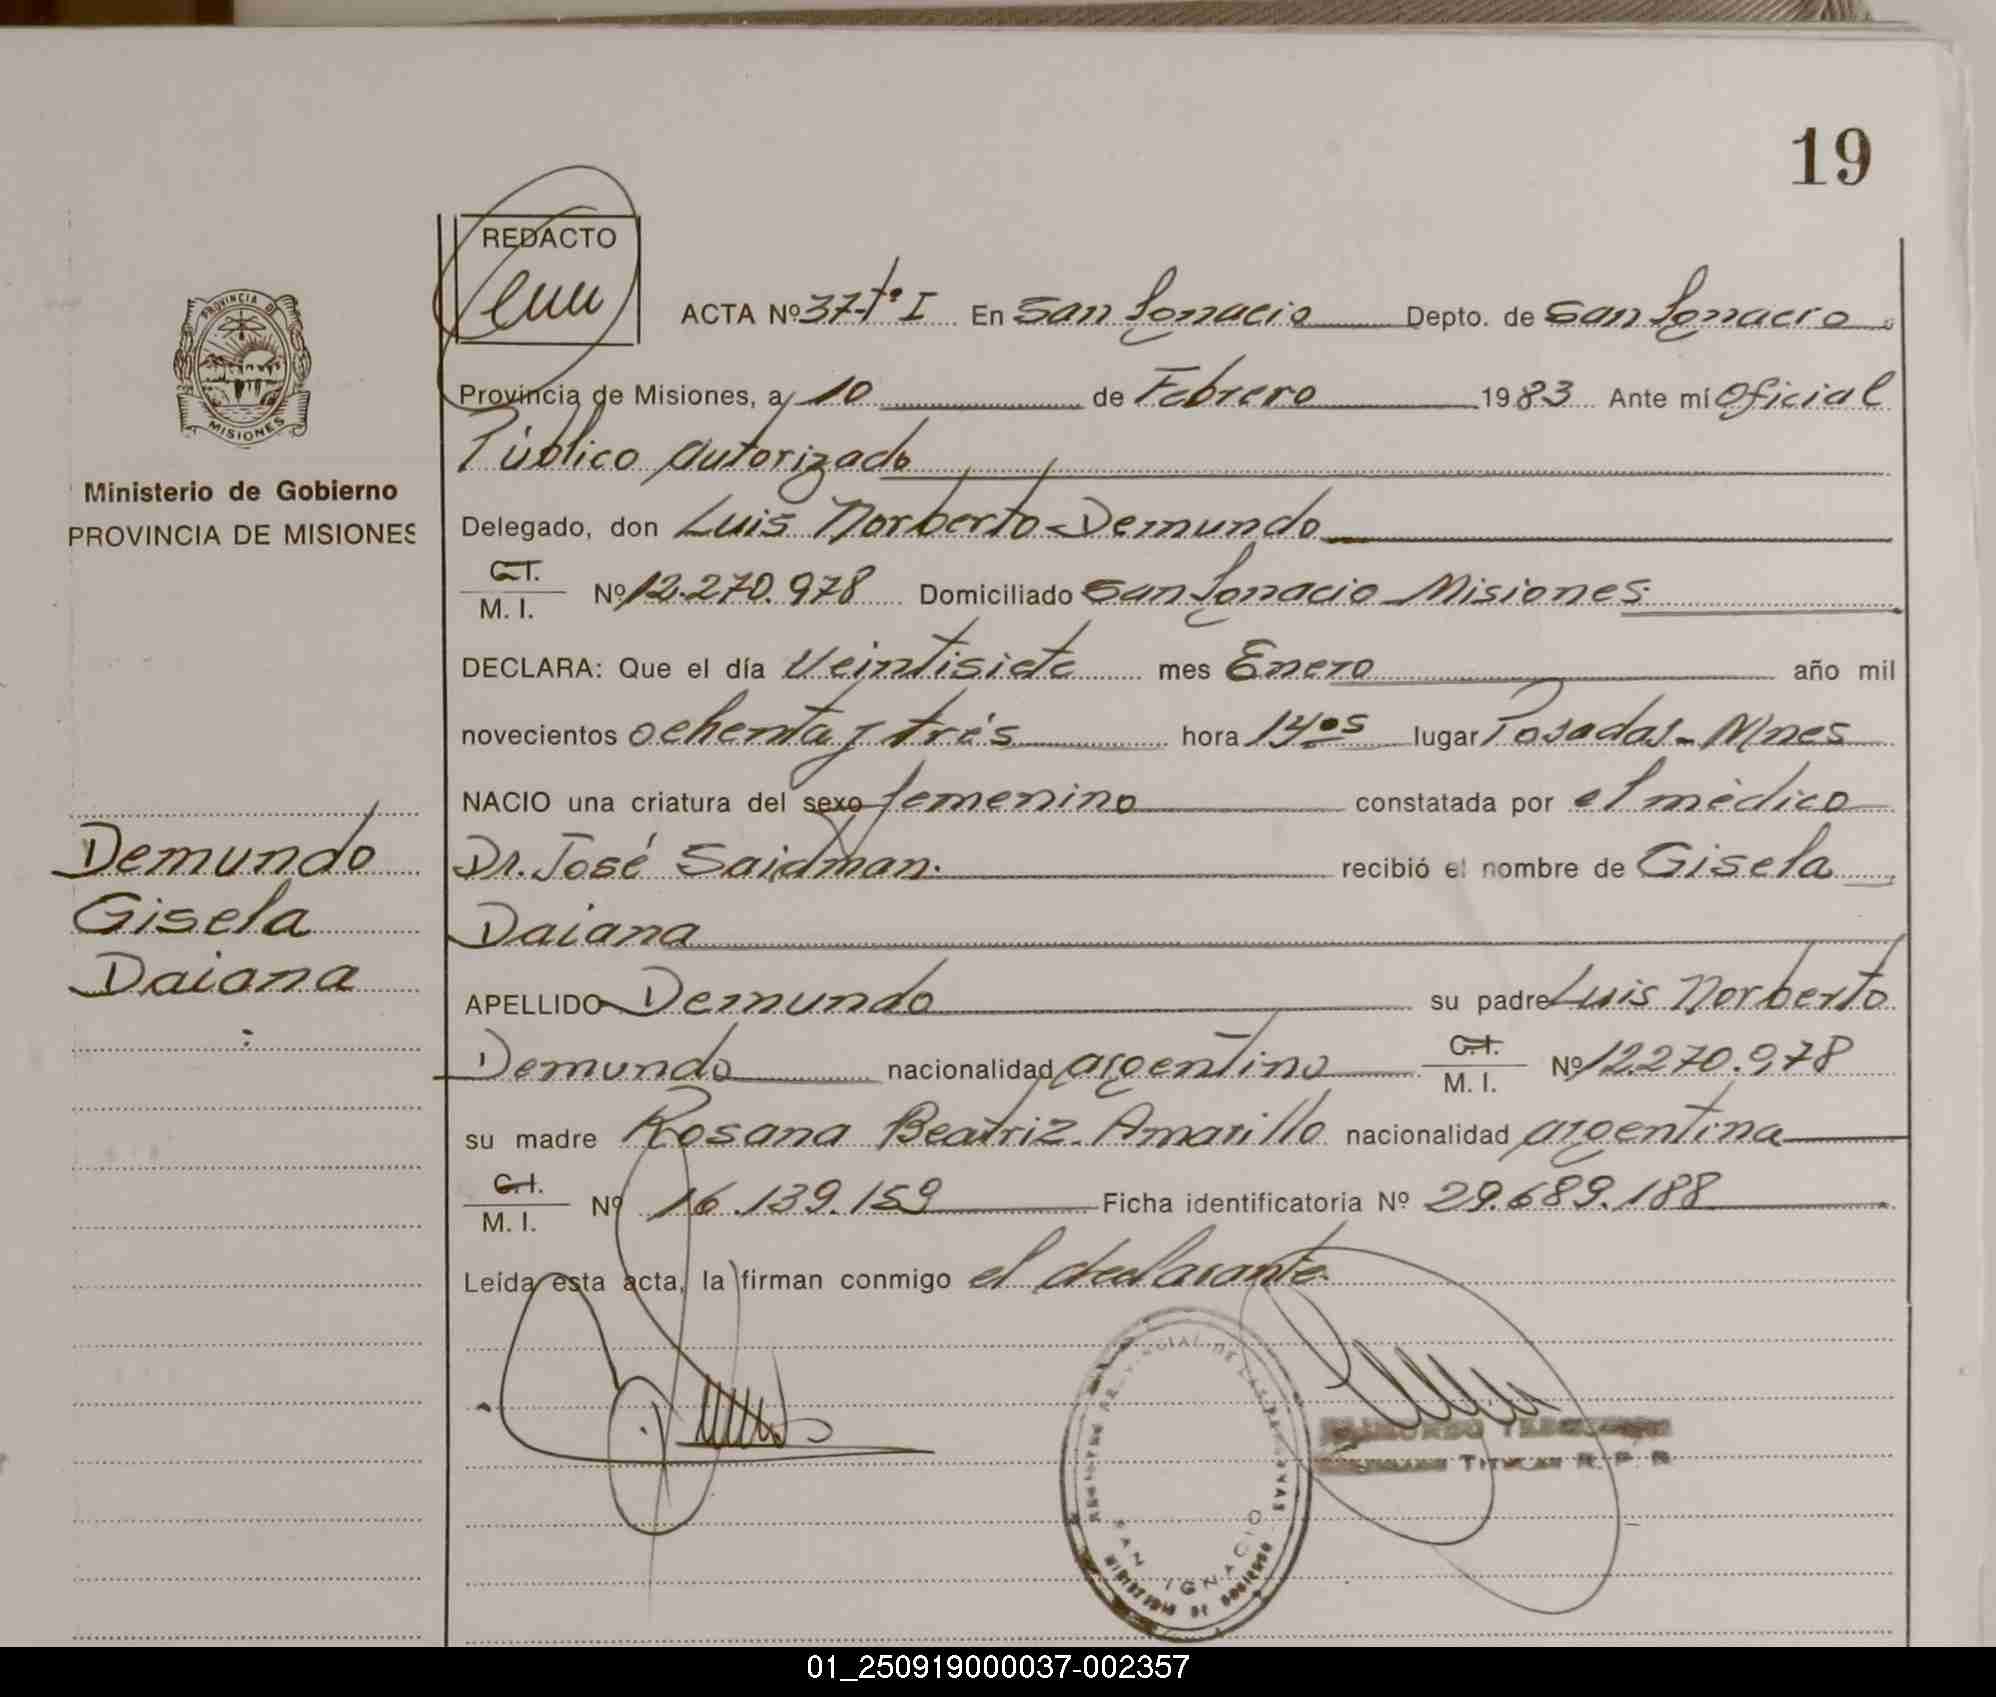 19
REDACTO
ACTA Nº 37-tº I En San Ignacio Depto. de San Ignacio
Provincia de Misiones, a 10 de Febrero 1983 Ante mí Oficial
Público autorizado
PROVINCIA DE MISIONES
Ministerio de Gobierno
PROVINCIA DE MISIONES
Delegado, don Luis Norberto Demundo
C.I. M. I. Nº 12.270.978 Domiciliado San Ignacio Misiones
DECLARA: Que el día Veintisiete mes Enero año mil
novecientos ochenta y trés hora 14 05 lugar Posadas - Mnes
NACIO una criatura del sexo femenino constatada por el médico
Demundo
Gisela
Daiana
Dr. José Saidman. recibió el nombre de Gisela
Daiana
APELLIDO Demundo su padre Luis Norberto
Demundo nacionalidad argentino C.I. M. I. Nº 12.270.978
su madre Rosana Beatriz Amarillo nacionalidad argentina
C.I. M. I. Nº 16.139.159 Ficha identificatoria Nº 29.689.188
Leída esta acta, la firman conmigo el declarante.
REGISTRO PROVINCIAL DE LAS PERSONAS
SAN IGNACIO
MINISTERIO DE GOBIERNO
TITULAR R. P. P.
01_250919000037-002357